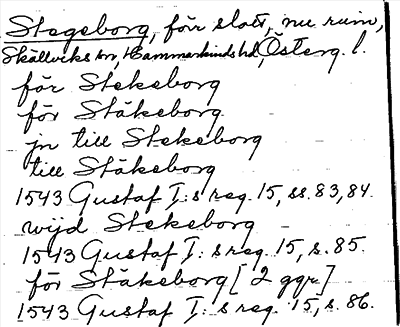 Stegeborg, förr slott, nu ruin,
Skällviks sn, Hammarkinds hd, Österg. l.
för Stekeborg
för Stäkeborg
jn till Stekeborg
till Stäkeborg
1543 Gustaf I:s reg. 15, ss. 83, 84.
wijd Stekeborg
1543 Gustaf I:s reg. 15, s. 85.
för Stäkeborg [2 ggr]
1543 Gustaf I:s reg. 15, s. 86.